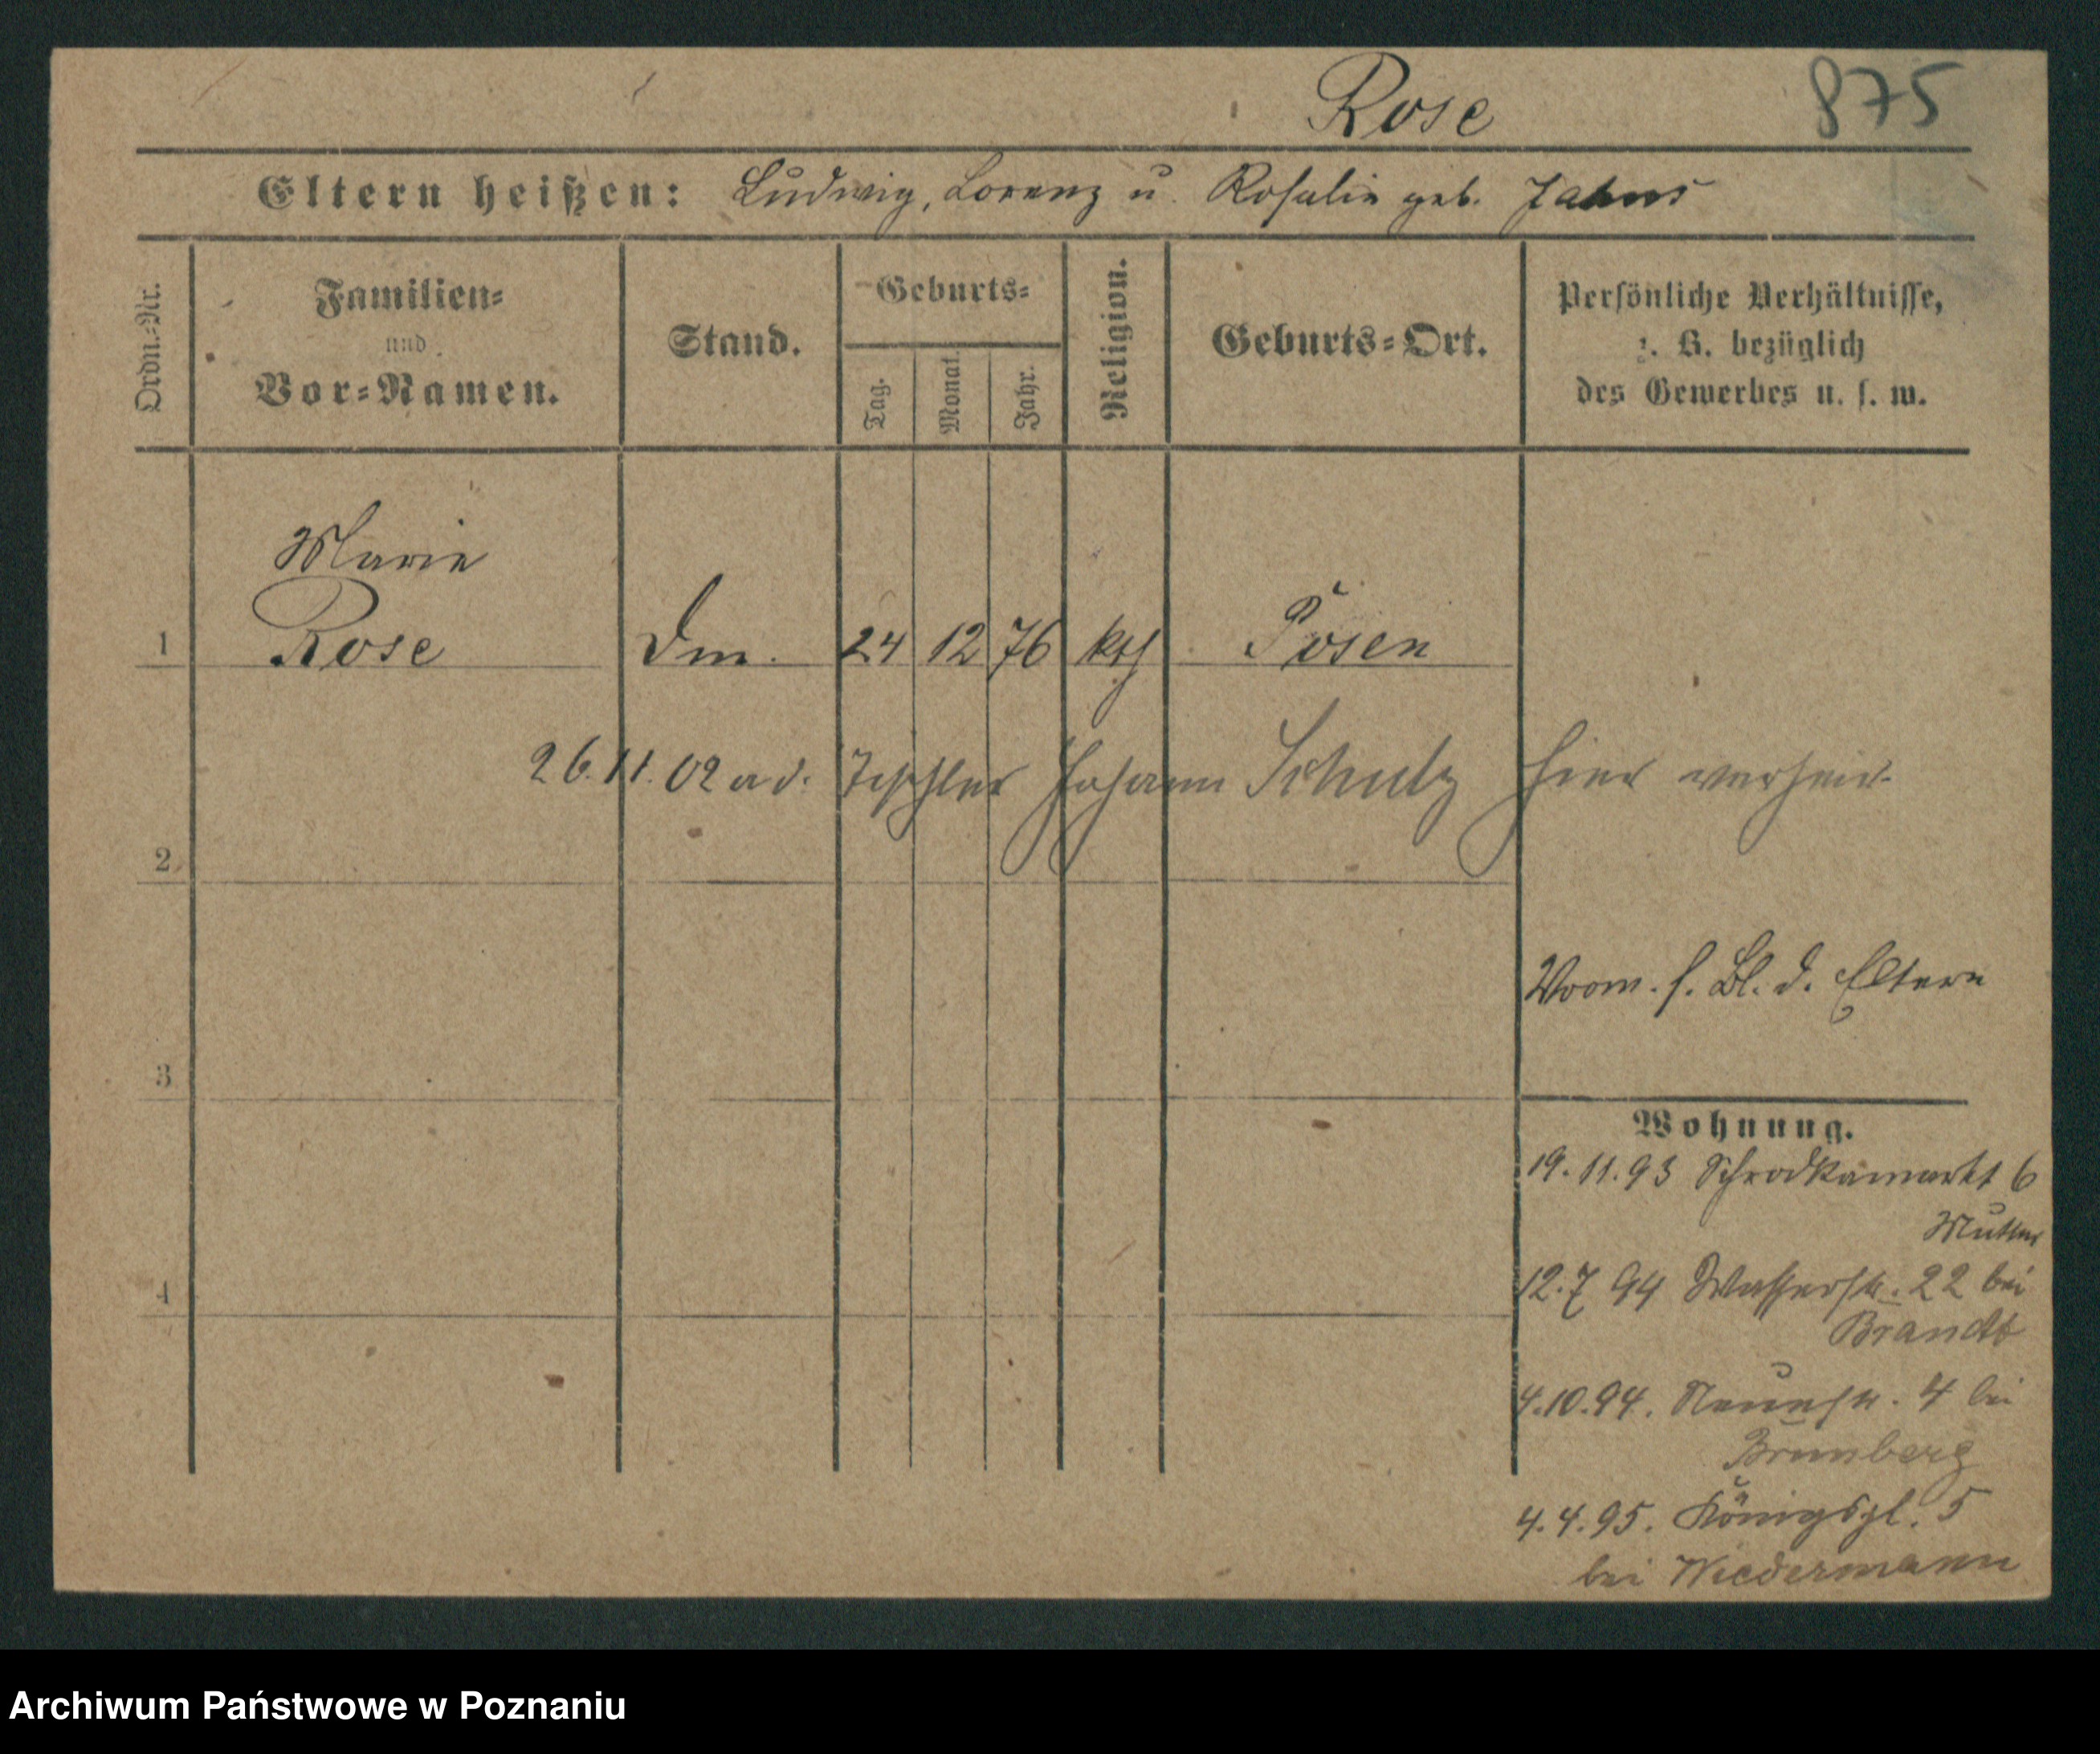 Rose
875
Eltern heißen: Ludwig, Lorenz u. Rosalie geb. Jahns
Ordn.-Nr.
Familien-
und
Vor-Namen.
Stand.
Geburts-
Tag.
Monat.
Jahr.
Religion.
Geburts-Ort.
Persönliche Verhältnisse,
z. B. bezüglich
des Gewerbes u. s. w.
Marie
1 Rose Dm. 24 12 76 kth Posen
26.11.02 a d. Tischler Johann Schulz hier verheir.
2
Vrom. s. Bl. d. Eltern
3
Wohnung.
19.11.93 Schrodkamarkt 6
Mutter
12.7 94 Wasserstr. 22 bei
Brandt
4
4.10.94. Neuestr. 4 bei
Brumberg
4.4.95. Königspl. 5
bei Wiedermann
Archiwum Państwowe w Poznaniu